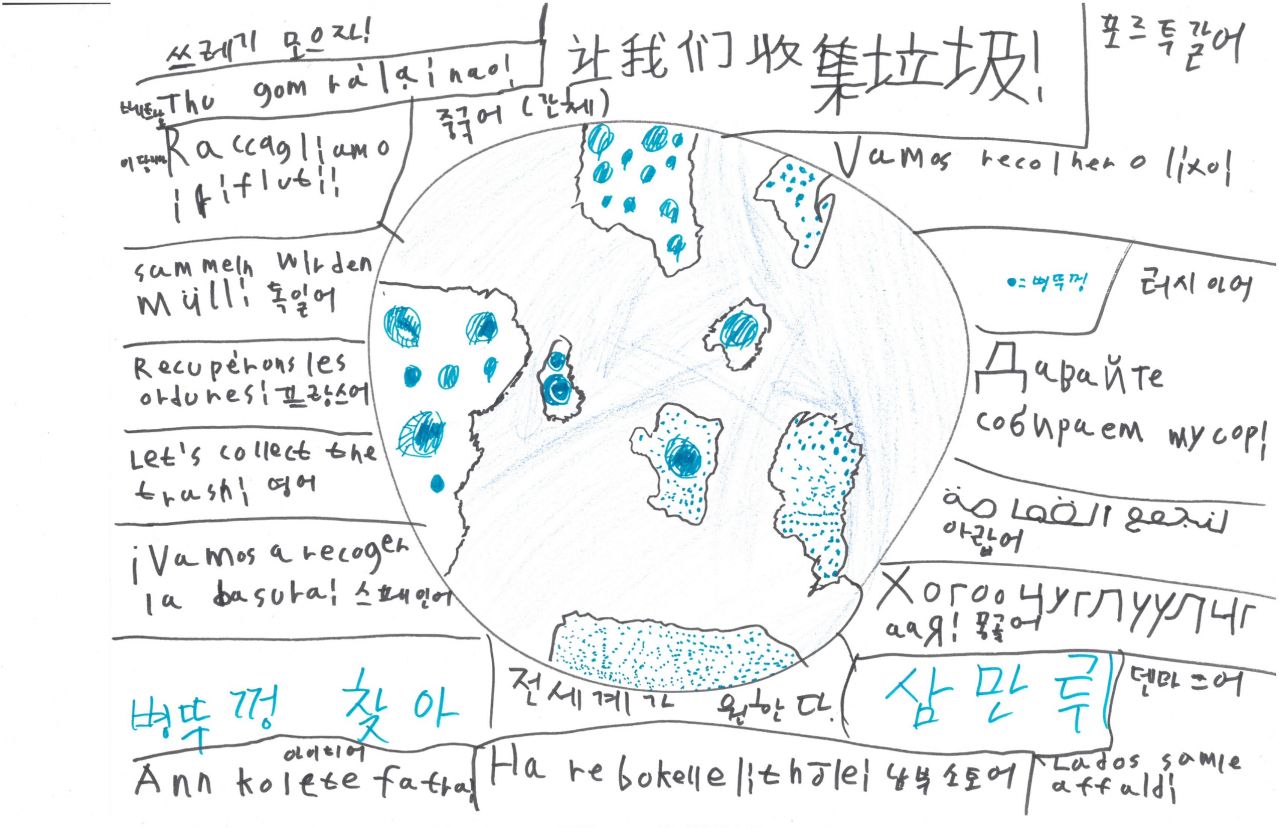 쓰레기 모으자!
Thu gom rá lại nao!
让我们收集垃圾!
포르투갈어
중국어 (간체)
이탈리아
Raccagliamo
i rifiuti!
Vamos recolher o lixo!
sammeln wirden
Müll! 독일어
•=병뚜껑
러시아어
Recupérons les
ordures! 프랑스어
Давайте
собираем мусор!
Let's collect the
trash! 영어
لنجمع القمامة
아랍어
¡Vamos a recoger
la basura! 스페인어
Хогоо цуглуулцг
аая! 몽골어
병뚜껑 찾아
전세계가 원한다.
삼만
덴마크어
아이티어
Ann kolete fatra!
Ha re bokelle lithōle! 남부 소토어
Lados samle
affald!